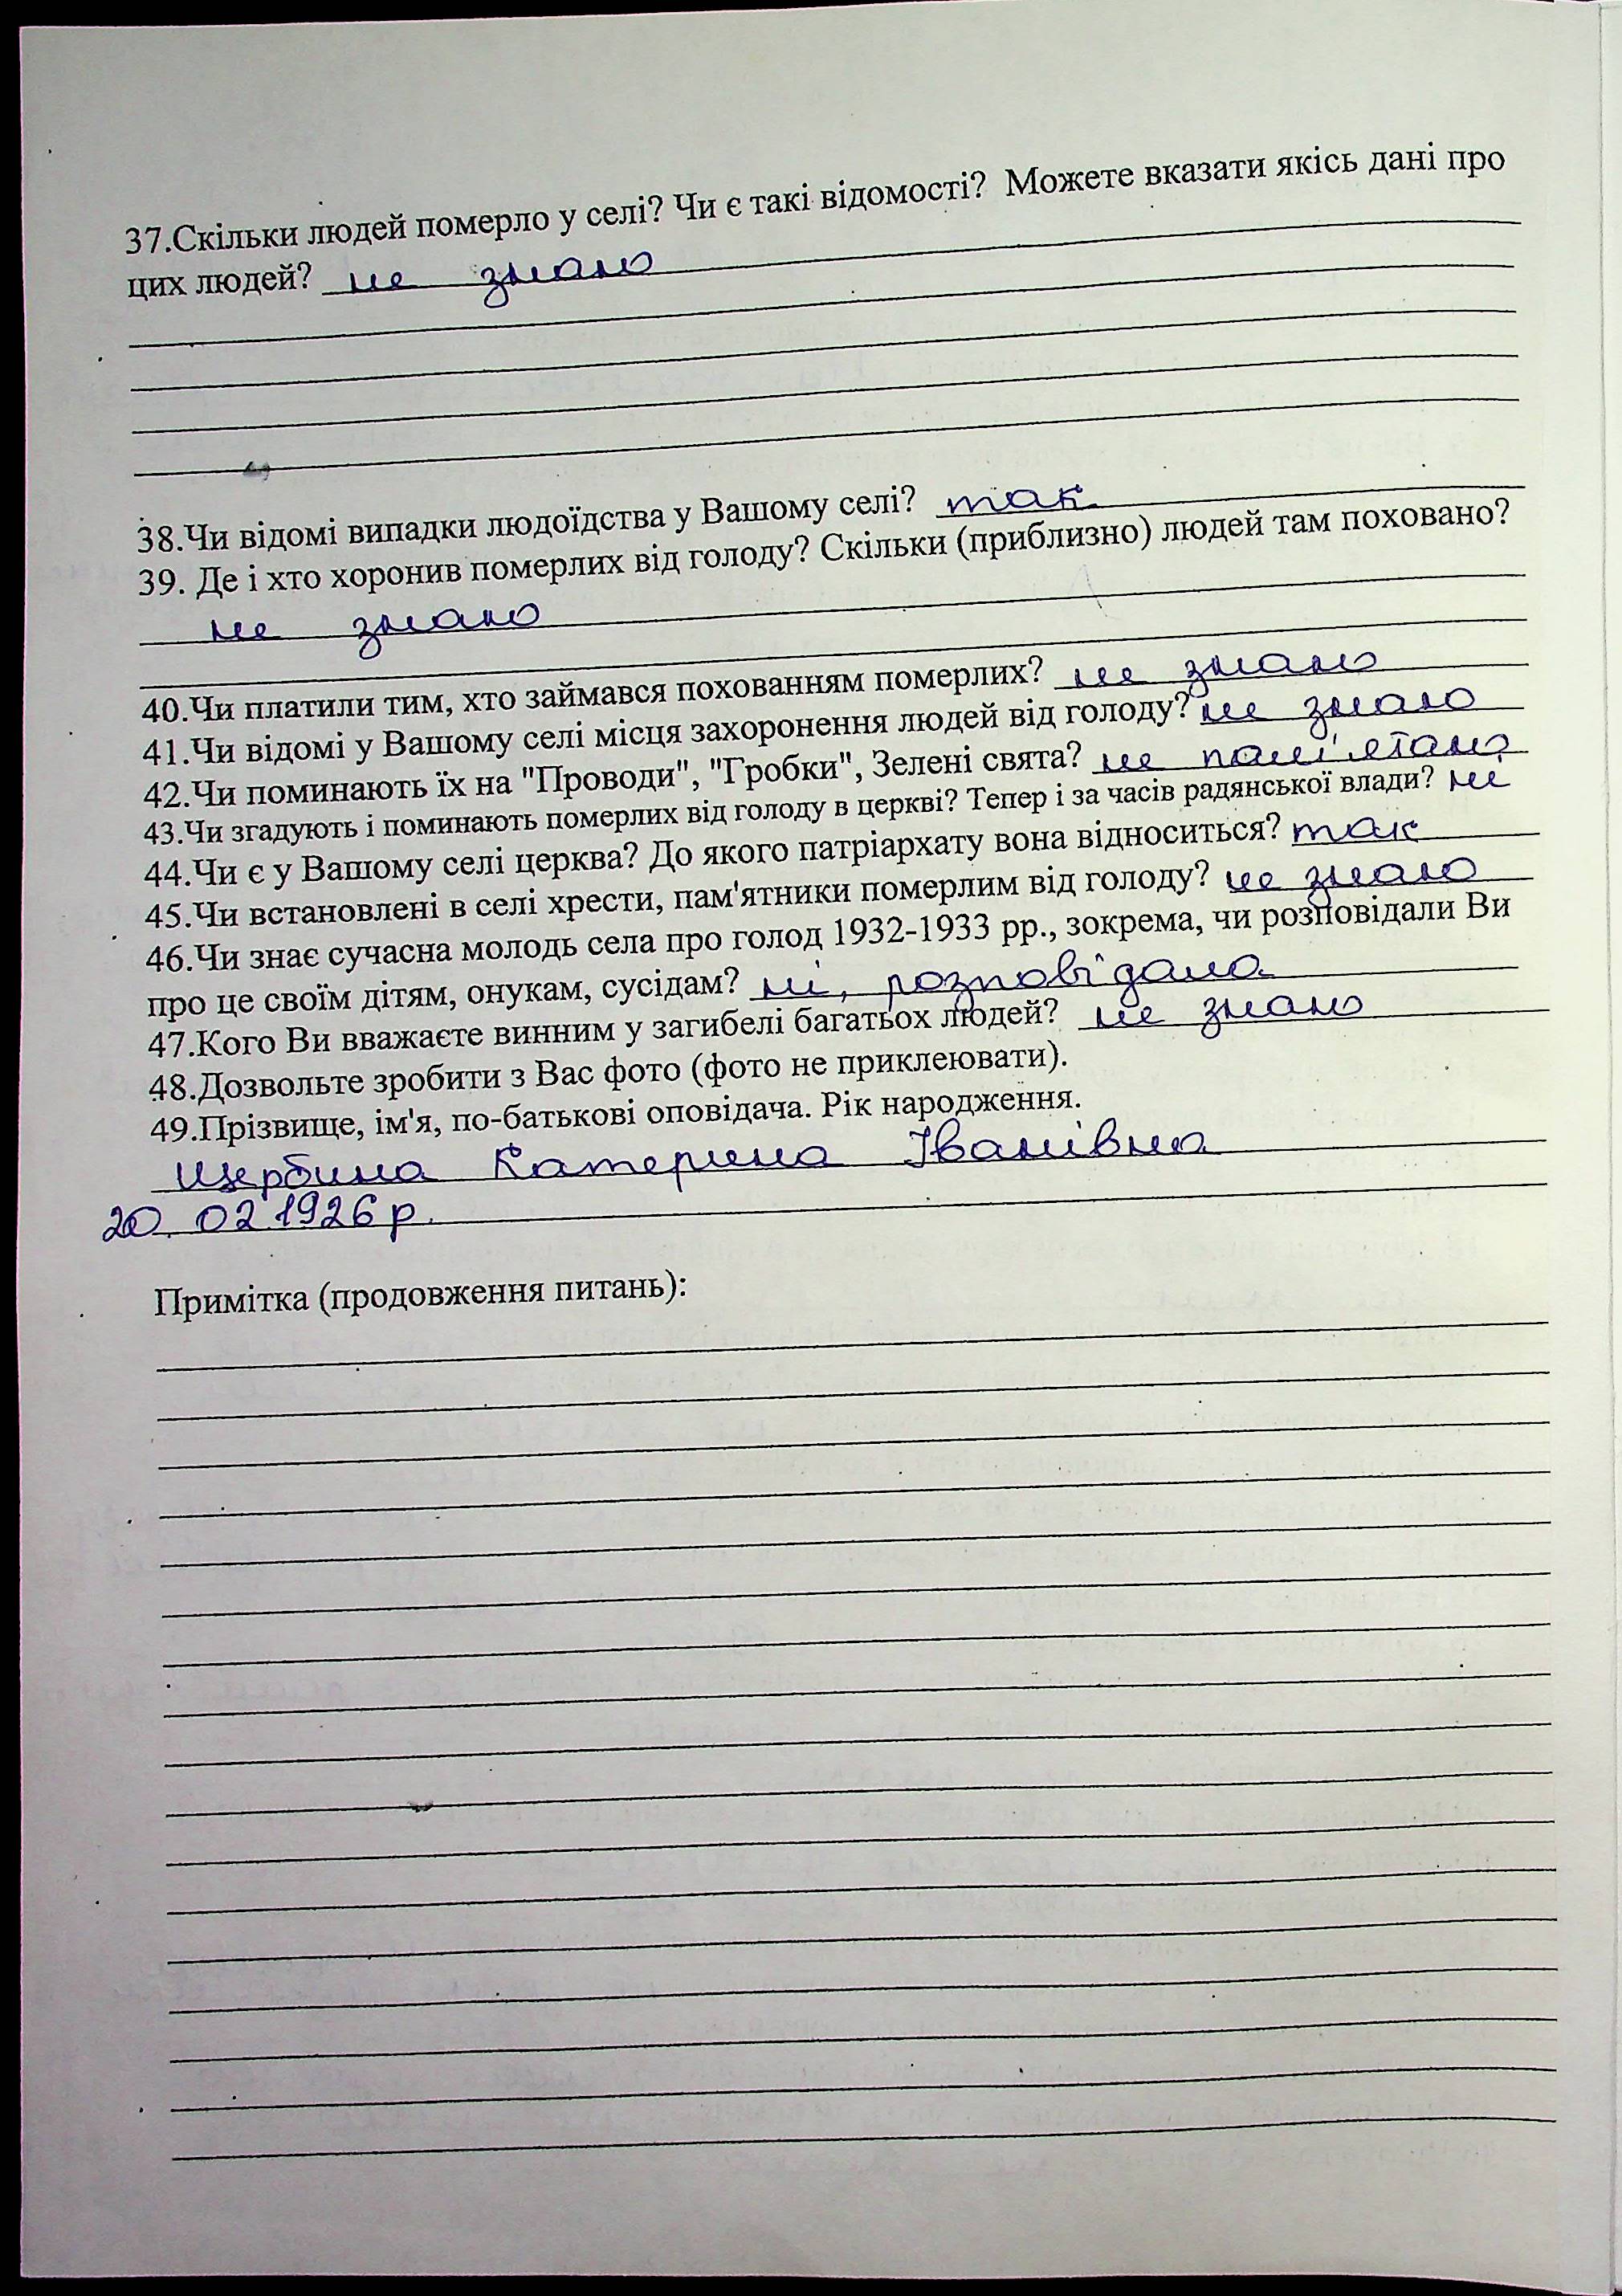 37.Скільки людей померло у селі? Чи є такі відомості? Можете вказати якісь дані про
цих людей? не знаю
38.Чи відомі випадки людоїдства у Вашому селі? так
39. Де і хто хоронив померлих від голоду? Скільки (приблизно) людей там поховано?
не знаю
40.Чи платили тим, хто займався похованням померлих? не знаю
41.Чи відомі у Вашому селі місця захоронення людей від голоду? не знаю
42.Чи поминають їх на "Проводи", "Гробки", Зелені свята? не пам'ятаю
43.Чи згадують і поминають померлих від голоду в церкві? Тепер і за часів радянської влади? ні
44.Чи є у Вашому селі церква? До якого патріархату вона відноситься? так
45.Чи встановлені в селі хрести, пам'ятники померлим від голоду? не знаю
46.Чи знає сучасна молодь села про голод 1932-1933 рр., зокрема, чи розповідали Ви
про це своїм дітям, онукам, сусідам? ні, розповідала
47.Кого Ви вважаєте винним у загибелі багатьох людей? не знаю
48.Дозвольте зробити з Вас фото (фото не приклеювати).
49.Прізвище, ім'я, по-батькові оповідача. Рік народження.
Щербина Катерина Іванівна
20. 02.1926 р.
Примітка (продовження питань):